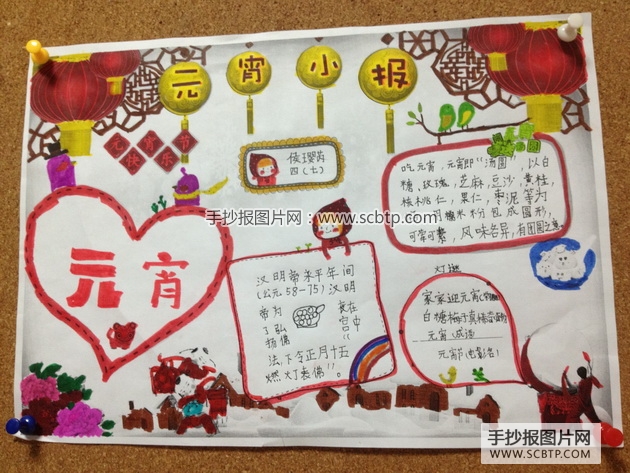 元宵小报
元宵节
快乐
四(七)
吃元宵,元宵即“汤圆”,以白
糖,玫瑰,芝麻,豆沙,黄桂,
核桃仁,果仁,枣泥等为
用糯米粉包成圆形,
可荤可素,风味各异,有团圆之意。
手抄报图片网:www.scbtp.com
元宵
汉明帝永平年间
(公元58-75)汉明
帝为
了弘
扬佛
法,下令正月十五
燃灯表佛”。
我在
宫中
灯谜
家家迎元宵
白糖梅
元宵(成语
元宵节(电影名)
手抄报图片网
WWW.SCBTP.COM